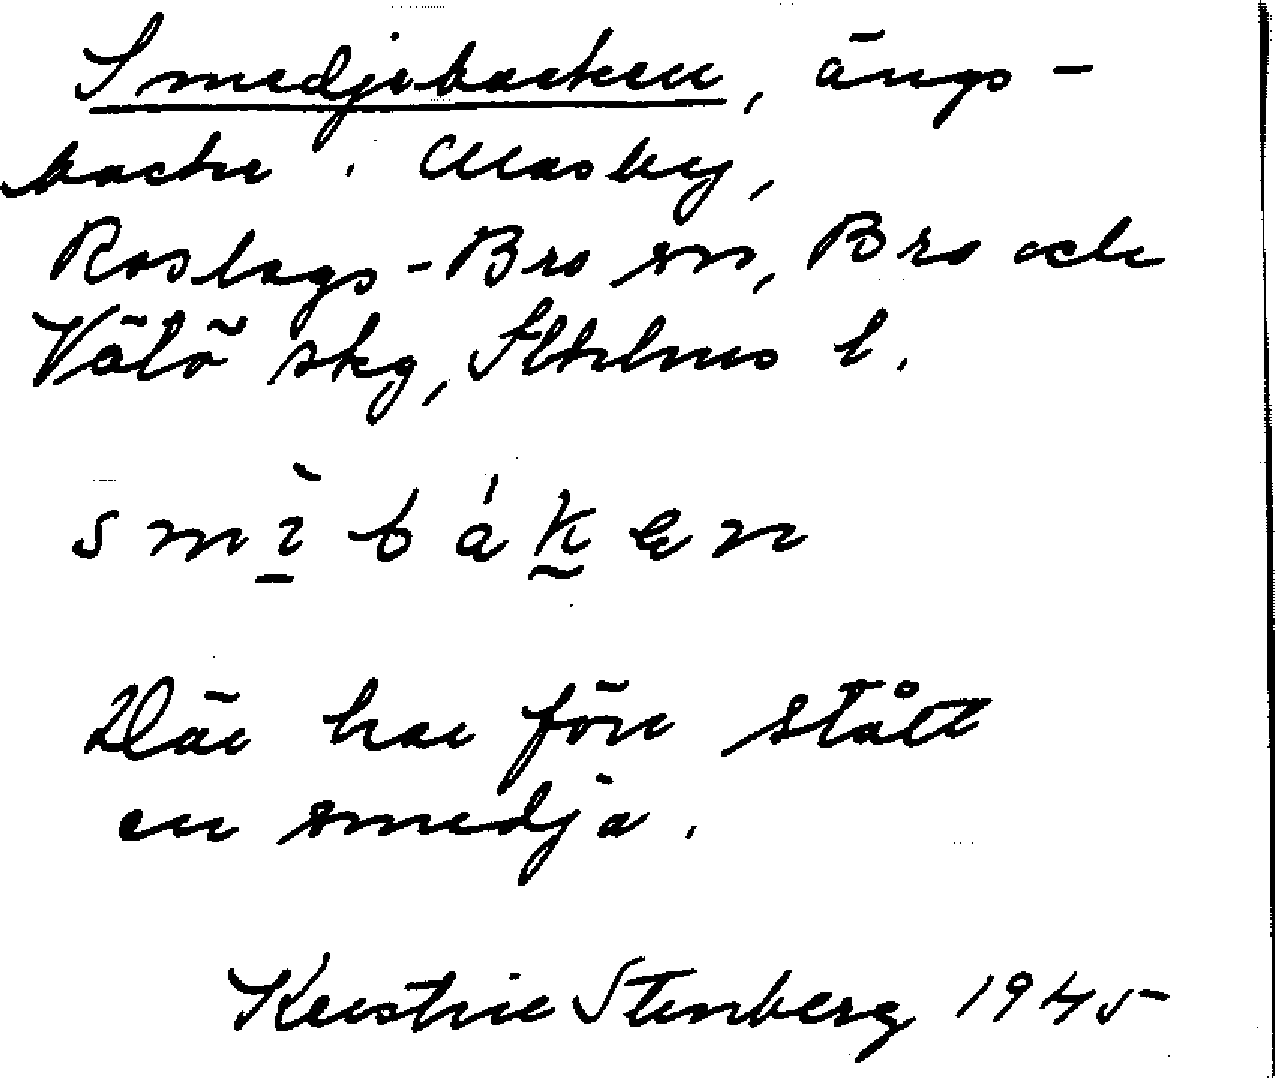 Smedjebacken, ängs-
backe. Masby,
Roslags-Bro sn, Bro och
Vätö skg, Sthlms l.
smìbák̰en
Där har förr stått
en smedja.
Kerstin Stenberg 1945